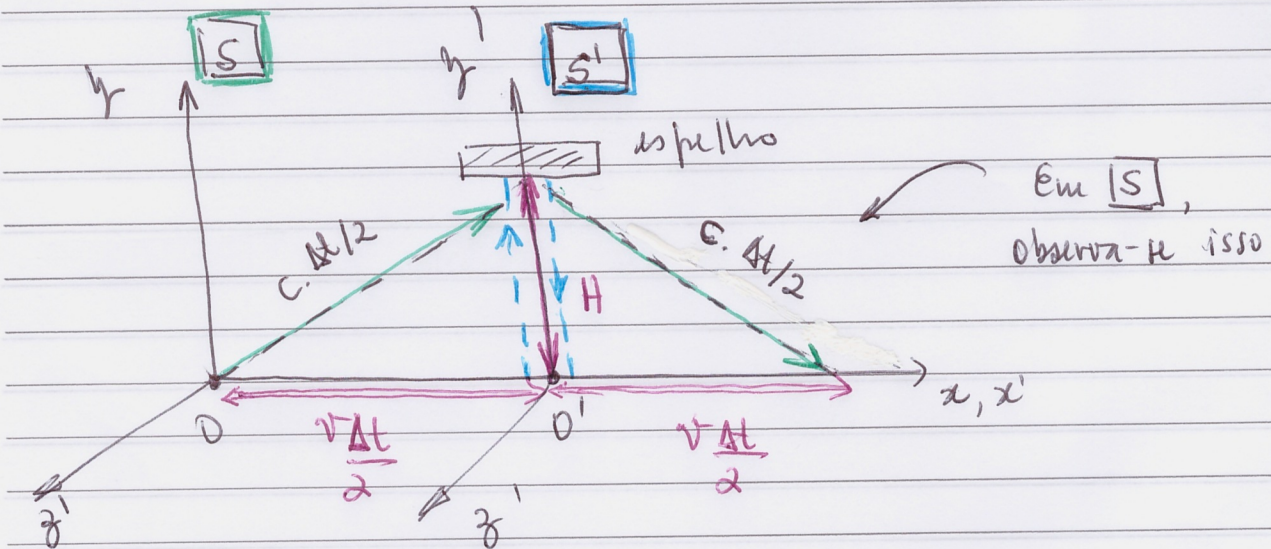 S
S'
y
y'
espelho
Em S,
observa-se isso
c. Δt/2
c. Δt/2
H
x, x'
O
O'
v Δt/2
v Δt/2
z'
z'